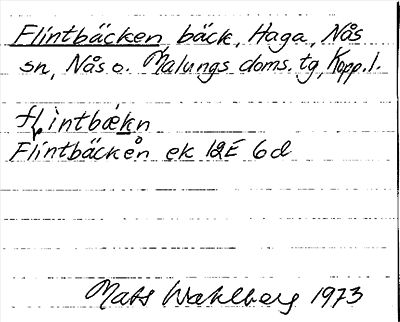 Flintbäcken bäck, Haga, Nås
sn, Nås o. Malungs doms. tg, Kopp. l.
flintbækn
Flintbäckån ek 12E 6d
Mats Wahlberg 1973